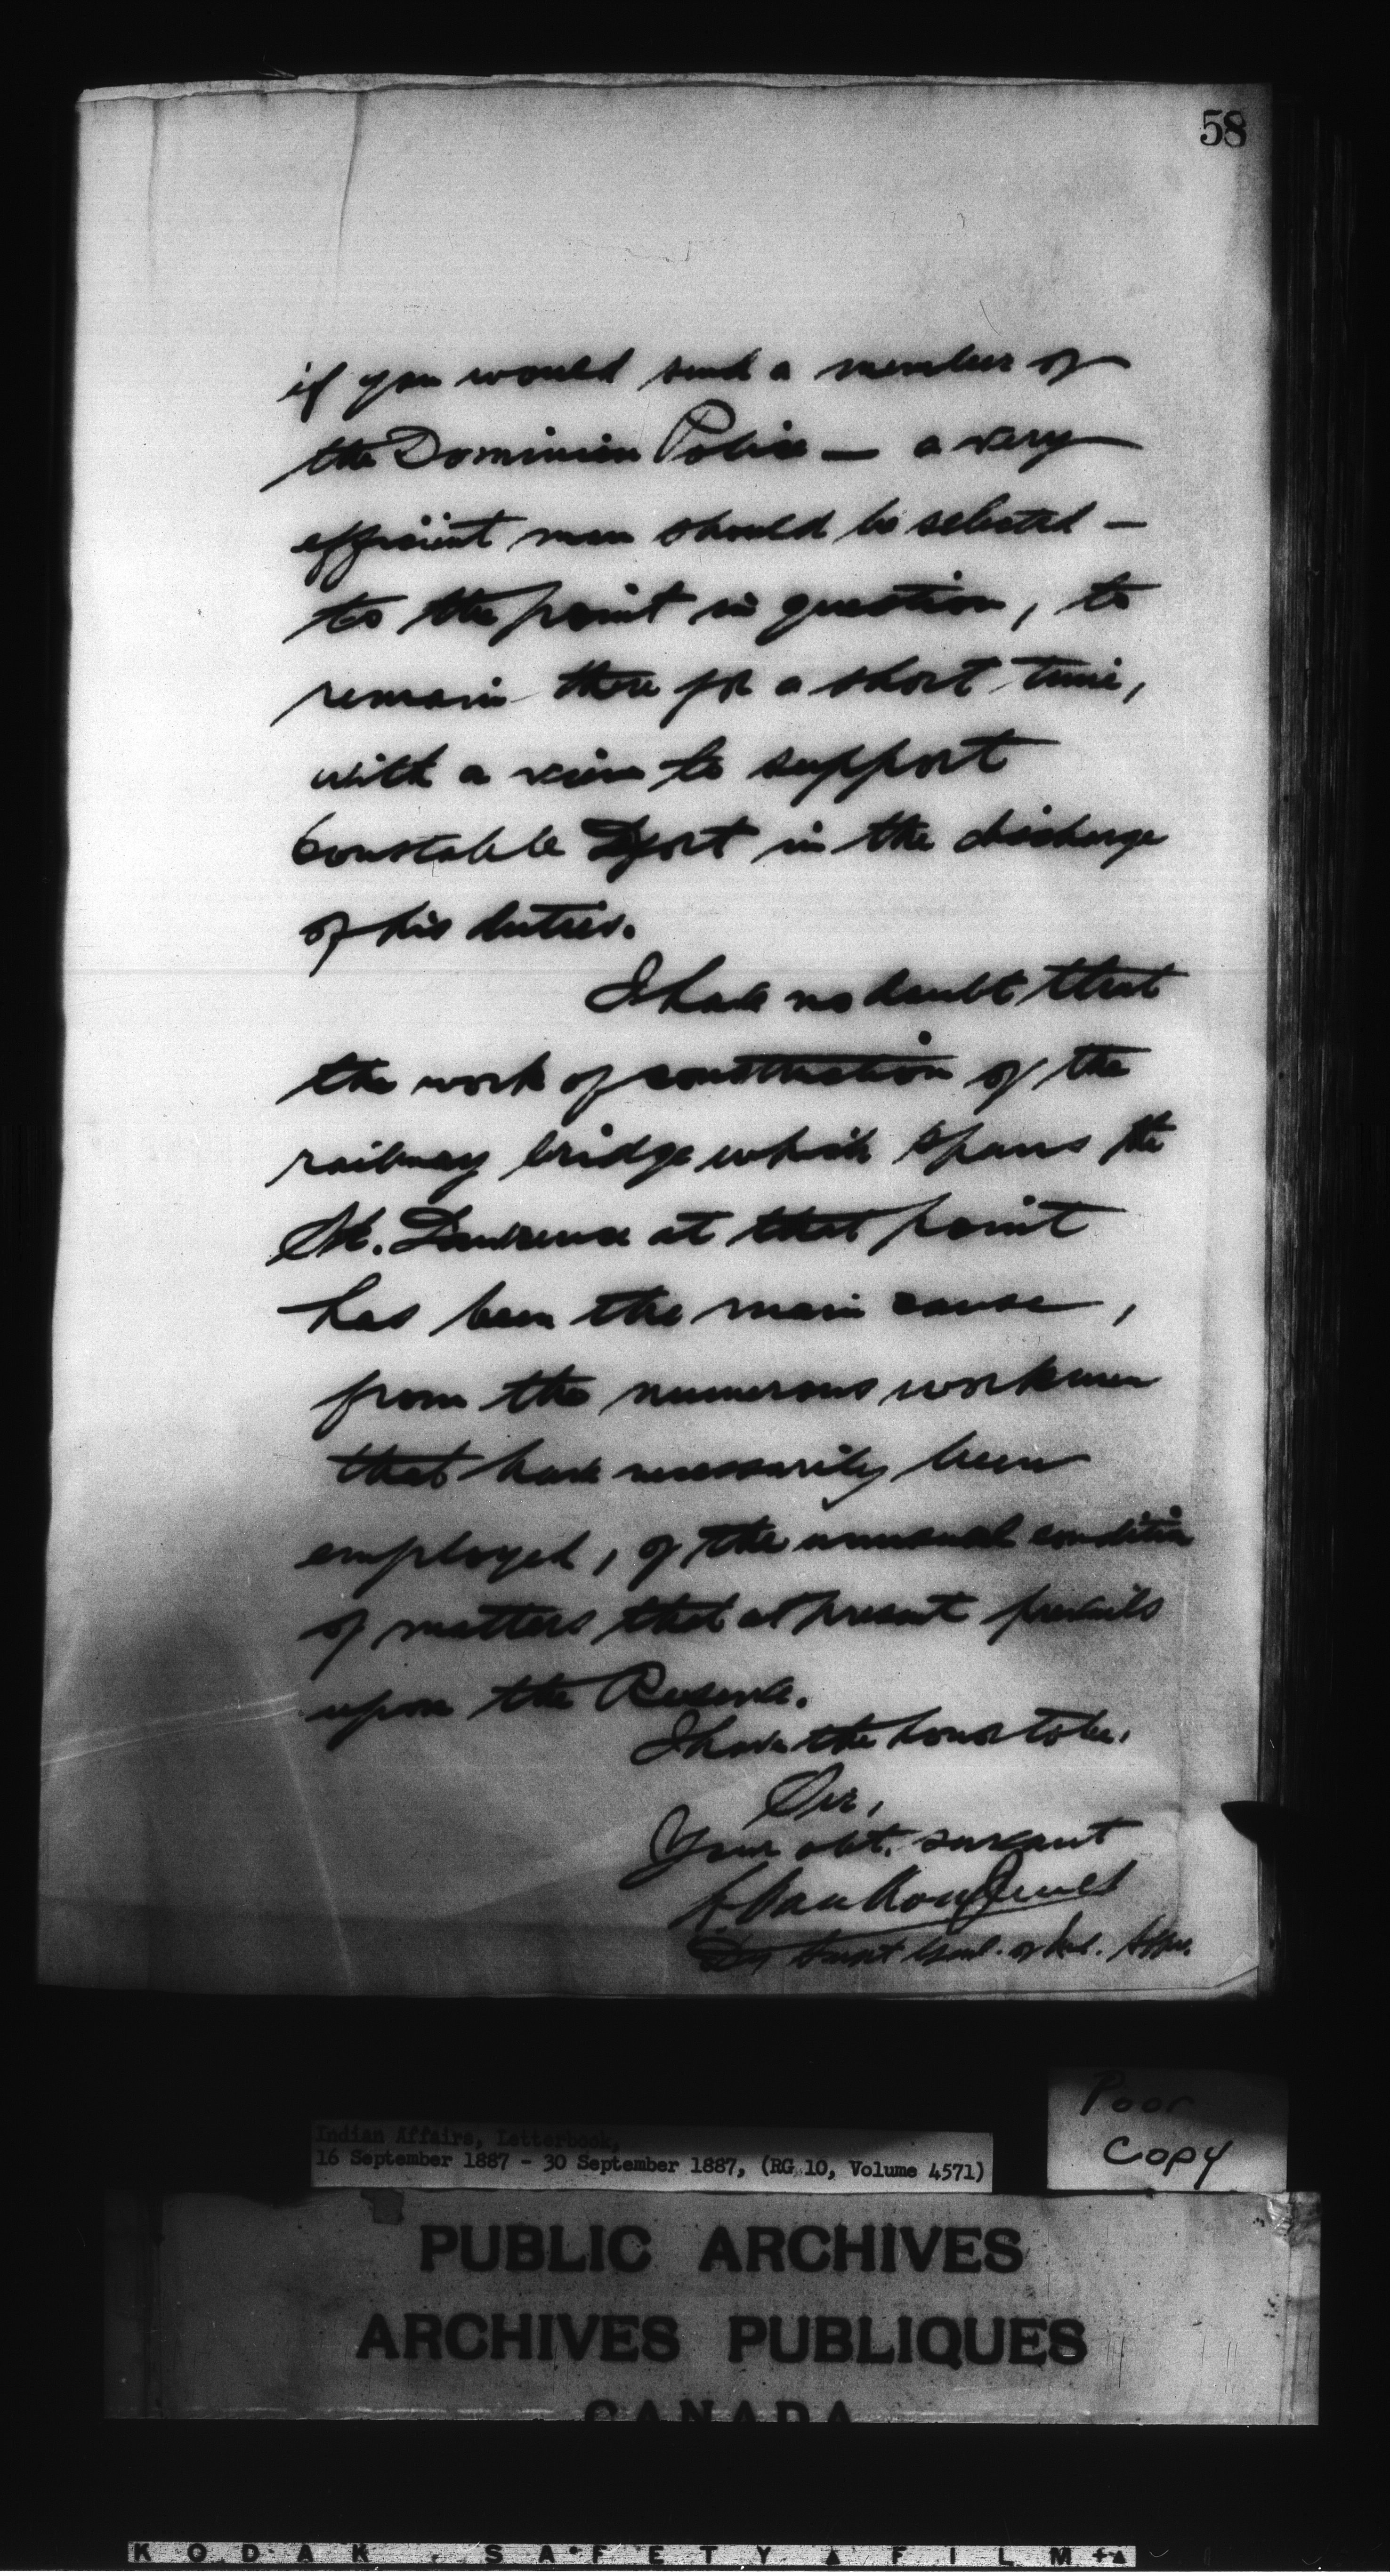 58
if you would send a member of
the Dominion Police — a very
efficient man should be selected —
to the point in question, to
remain there for a short time,
with a view to support
Constable in the discharge
of his duties.
I have no doubt that
the work of construction of the
railway bridge which spans the
St. Lawrence at that point
has been the main cause,
from the numerous workmen
that have necessarily been
employed, of the unusual condition
of matters that at present prevails
upon the Reserve.
I have the honor to be,
Sir,
Your obt. servant
L. VanKoughnet
Dy Supt Genl. of Ind. Affrs.
Poor
Copy
Indian Affairs, Letterbook,
16 September 1887 - 30 September 1887, (RG 10, Volume 4571)
PUBLIC ARCHIVES
ARCHIVES PUBLIQUES
CANADA
KODAK SAFETY FILM